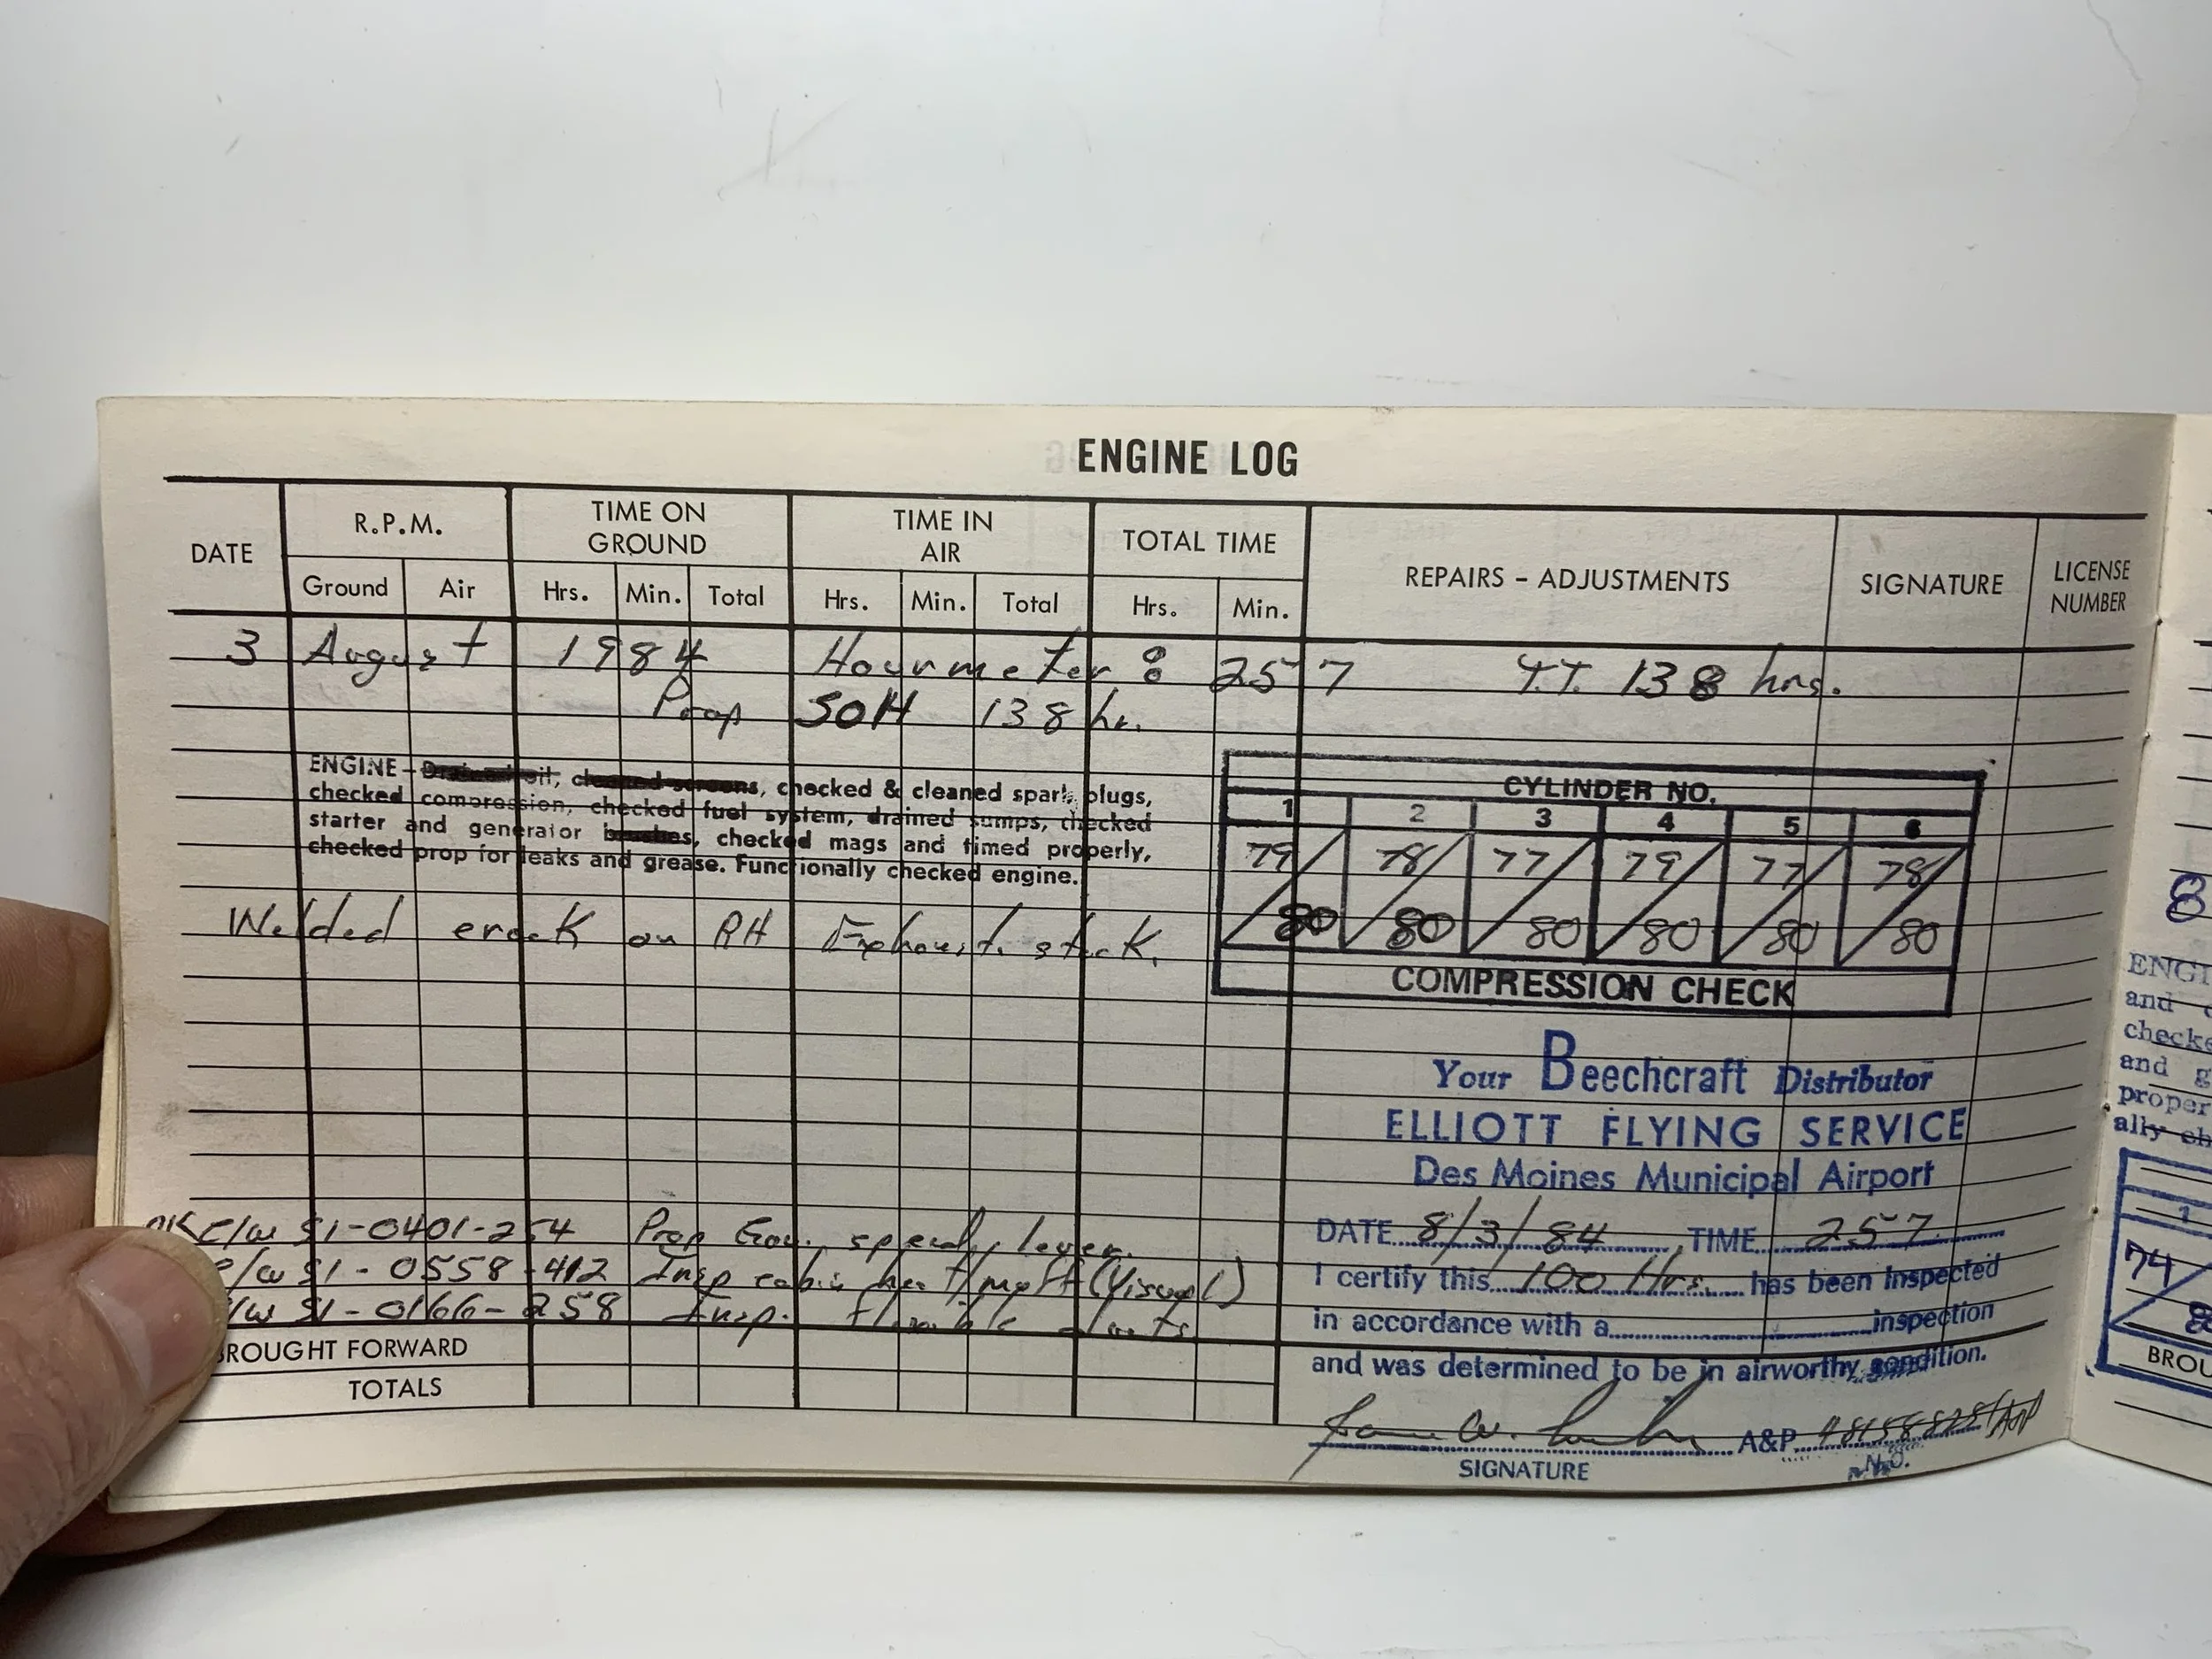 ENGINE LOG
DATE R.P.M. TIME ON GROUND TIME IN AIR TOTAL TIME REPAIRS - ADJUSTMENTS SIGNATURE LICENSE NUMBER
Ground Air Hrs. Min. Total Hrs. Min. Total Hrs. Min.
3 August 1984 Hourmeter: 257 T.T. 138 hrs.
Prop SOH 138 hr.
ENGINE - Drained oil, cleaned screens, checked & cleaned spark plugs,
checked compression, checked fuel system, drained sumps, checked
starter and generator brushes, checked mags and timed properly,
checked prop for leaks and grease. Functionally checked engine.
CYLINDER NO.
1 2 3 4 5 6
79/80 78/80 77/80 79/80 77/80 78/80
COMPRESSION CHECK
Welded crack on RH Exhaust stack.
C/W SI-0401-254 Prop Gov. lever.
/W SI-0558-412 Insp cabin heat (Visual)
/W SI-0166-258 Insp. flexible
BROUGHT FORWARD
TOTALS
Your Beechcraft Distributor
ELLIOTT FLYING SERVICE
Des Moines Municipal Airport
DATE 8/3/84, TIME 257
I certify this 100 Hrs. has been inspected
in accordance with a inspection
and was determined to be in airworthy condition.
A&P
SIGNATURE NO.
8
ENGI
and
checke
and g
proper
ally ch
1
74
BROU